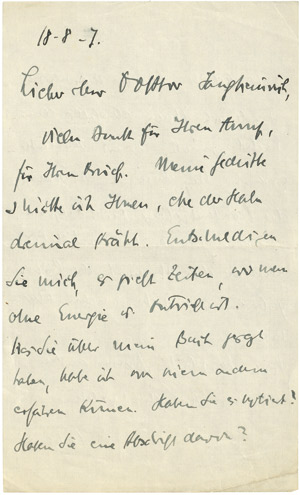 18-8-7.
Lieber Herr Doktor
vielen Dank für Ihren Anruf,
für Ihren Brief. Meine Gedichte
schicke ich Ihnen, ehe der Hahn
dreimal kräht. Entschuldigen
Sie mich, es giebt Zeiten, wo man
ohne Energie u. Antrieb ist.
Was Sie über mein Buch gesagt
haben, habe ich von einem andern
erfahren können. Haben Sie es notiert?
Haben Sie eine Abschrift davon?